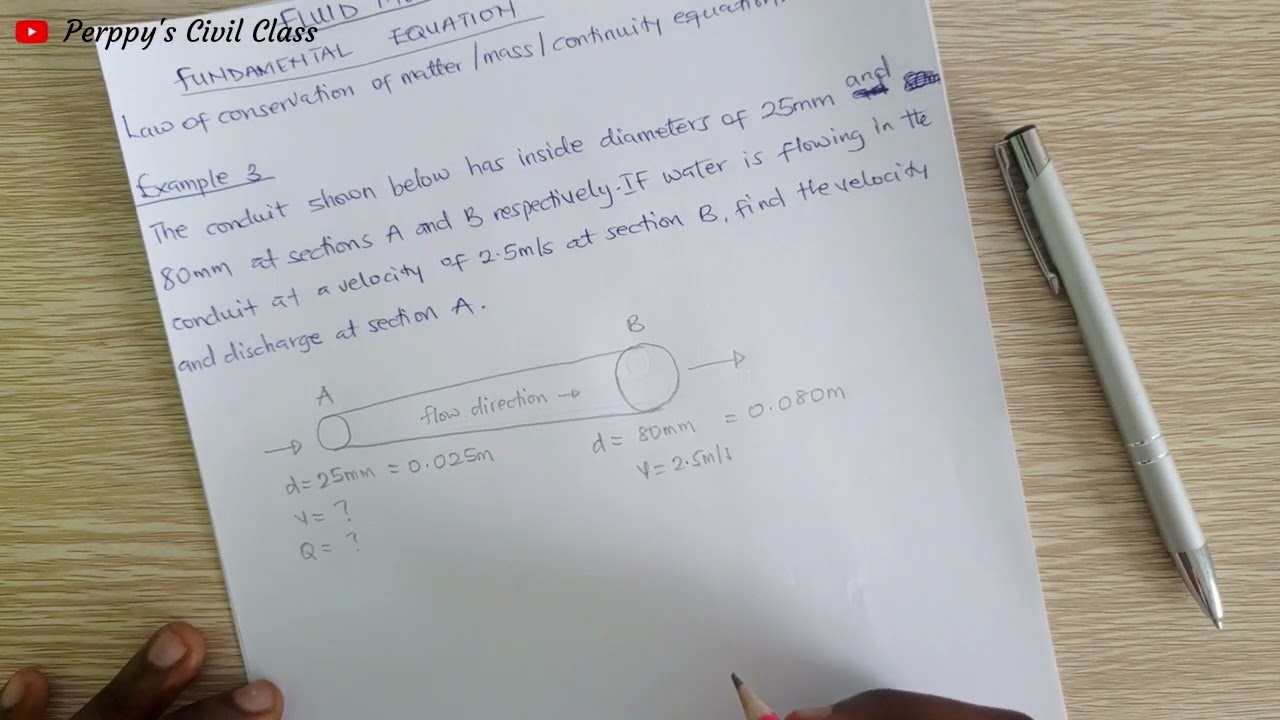 Perppy's Civil Class
FLUID
FUNDAMENTAL EQUATION
Law of conservation of matter/mass/continuity equation.
Example 3
The conduit shown below has inside diameters of 25mm and
80mm at sections A and B respectively. IF water is flowing in the
conduit at a velocity of 2.5m/s at section B, find the velocity
and discharge at section A.
B
A
flow direction →
d = 80mm = 0.080m
V = 2.5m/s
d = 25mm = 0.025m
V = ?
Q = ?